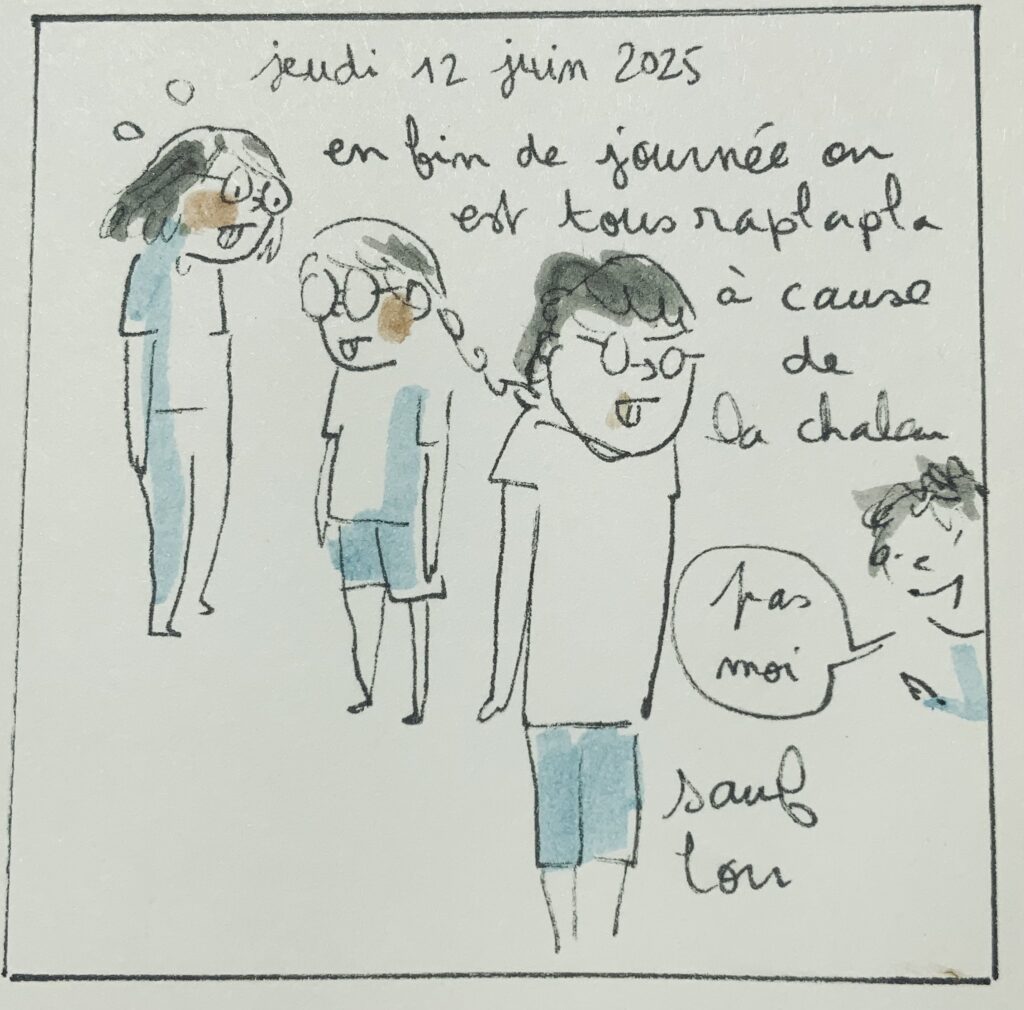 jeudi 12 juin 2025
en fin de journée on
est tous raplapla
à cause
de
la chaleur
pas
moi
sauf
lou